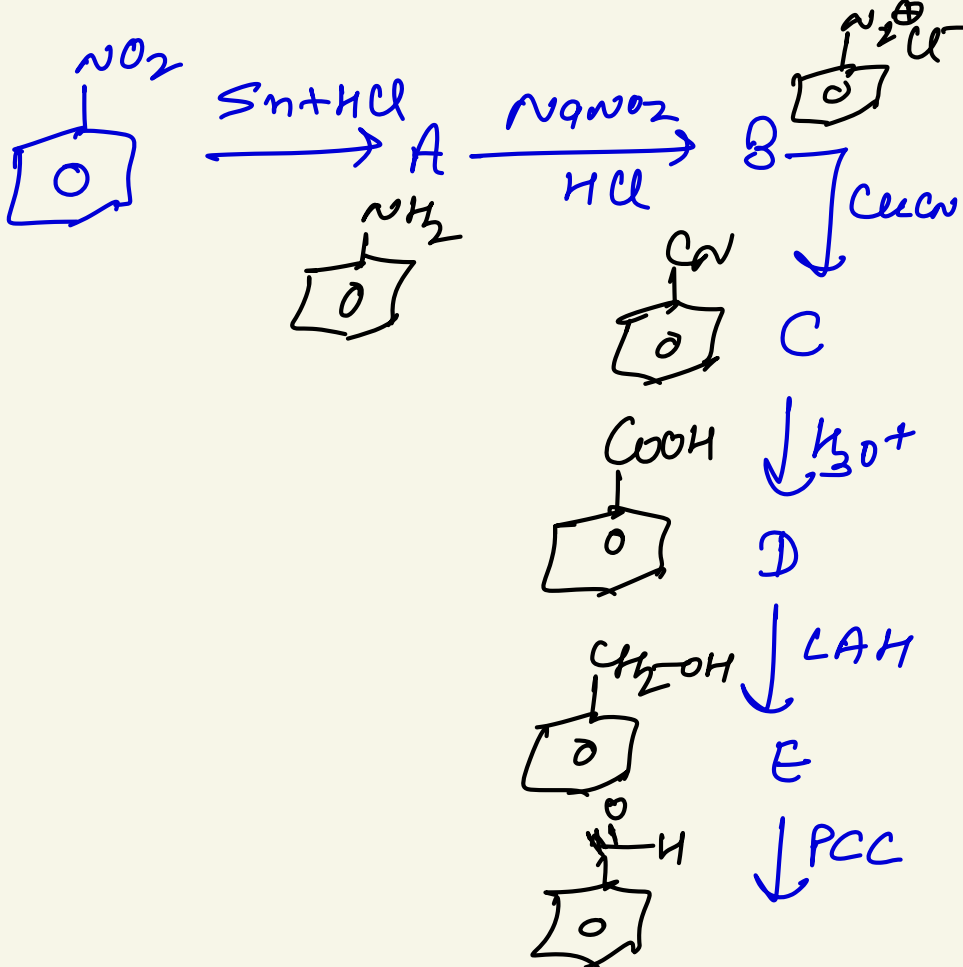 NO2
Sn+HCl
A
NaNO2
HCl
B
N2⊕Cl−
NH2
CuCN
CN
C
H3O+
COOH
D
LAH
CH2-OH
E
PCC
O
H